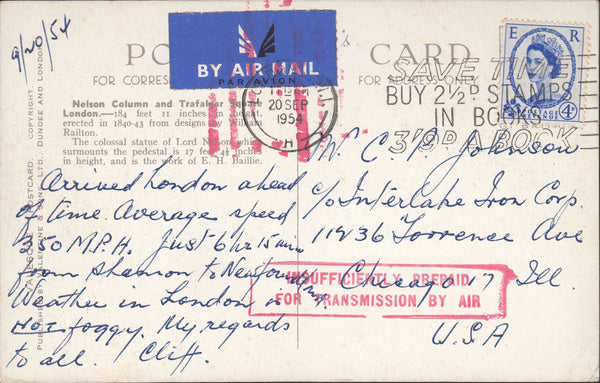 9/20/54
POST CARD
FOR CORRES
FOR ADDRESS ONLY
BY AIR MAIL
PAR AVION
E R
POSTAGE
4D
SAVE TIME
BUY 2½D STAMPS
IN BOOKS
3/9D A BOOK
20 SEP
1954
H
Nelson Column and Trafalgar Square
London.—184 feet 11 inches in height,
erected in 1840-43 from designs by William
Railton.
The colossal statue of Lord Nelson which
surmounts the pedestal is 17 feet 4½ inches
in height, and is the work of E. H. Baillie.
Arrived London ahead
of time. Average speed
350 M.P.H. Just 6 hr 15 min
from Shannon to Newfoundland.
Weather in London is
not foggy. My regards
to all. Cliff.
Mr C Johnson
c/o Interlake Iron Corp.
11236 Torrence Ave
Chicago 17 Ill
U.S.A
INSUFFICIENTLY PREPAID
FOR TRANSMISSION BY AIR
POSTCARD. COPYRIGHT
PUBLISHED BY VALENTINE & SONS, LTD., DUNDEE AND LONDON